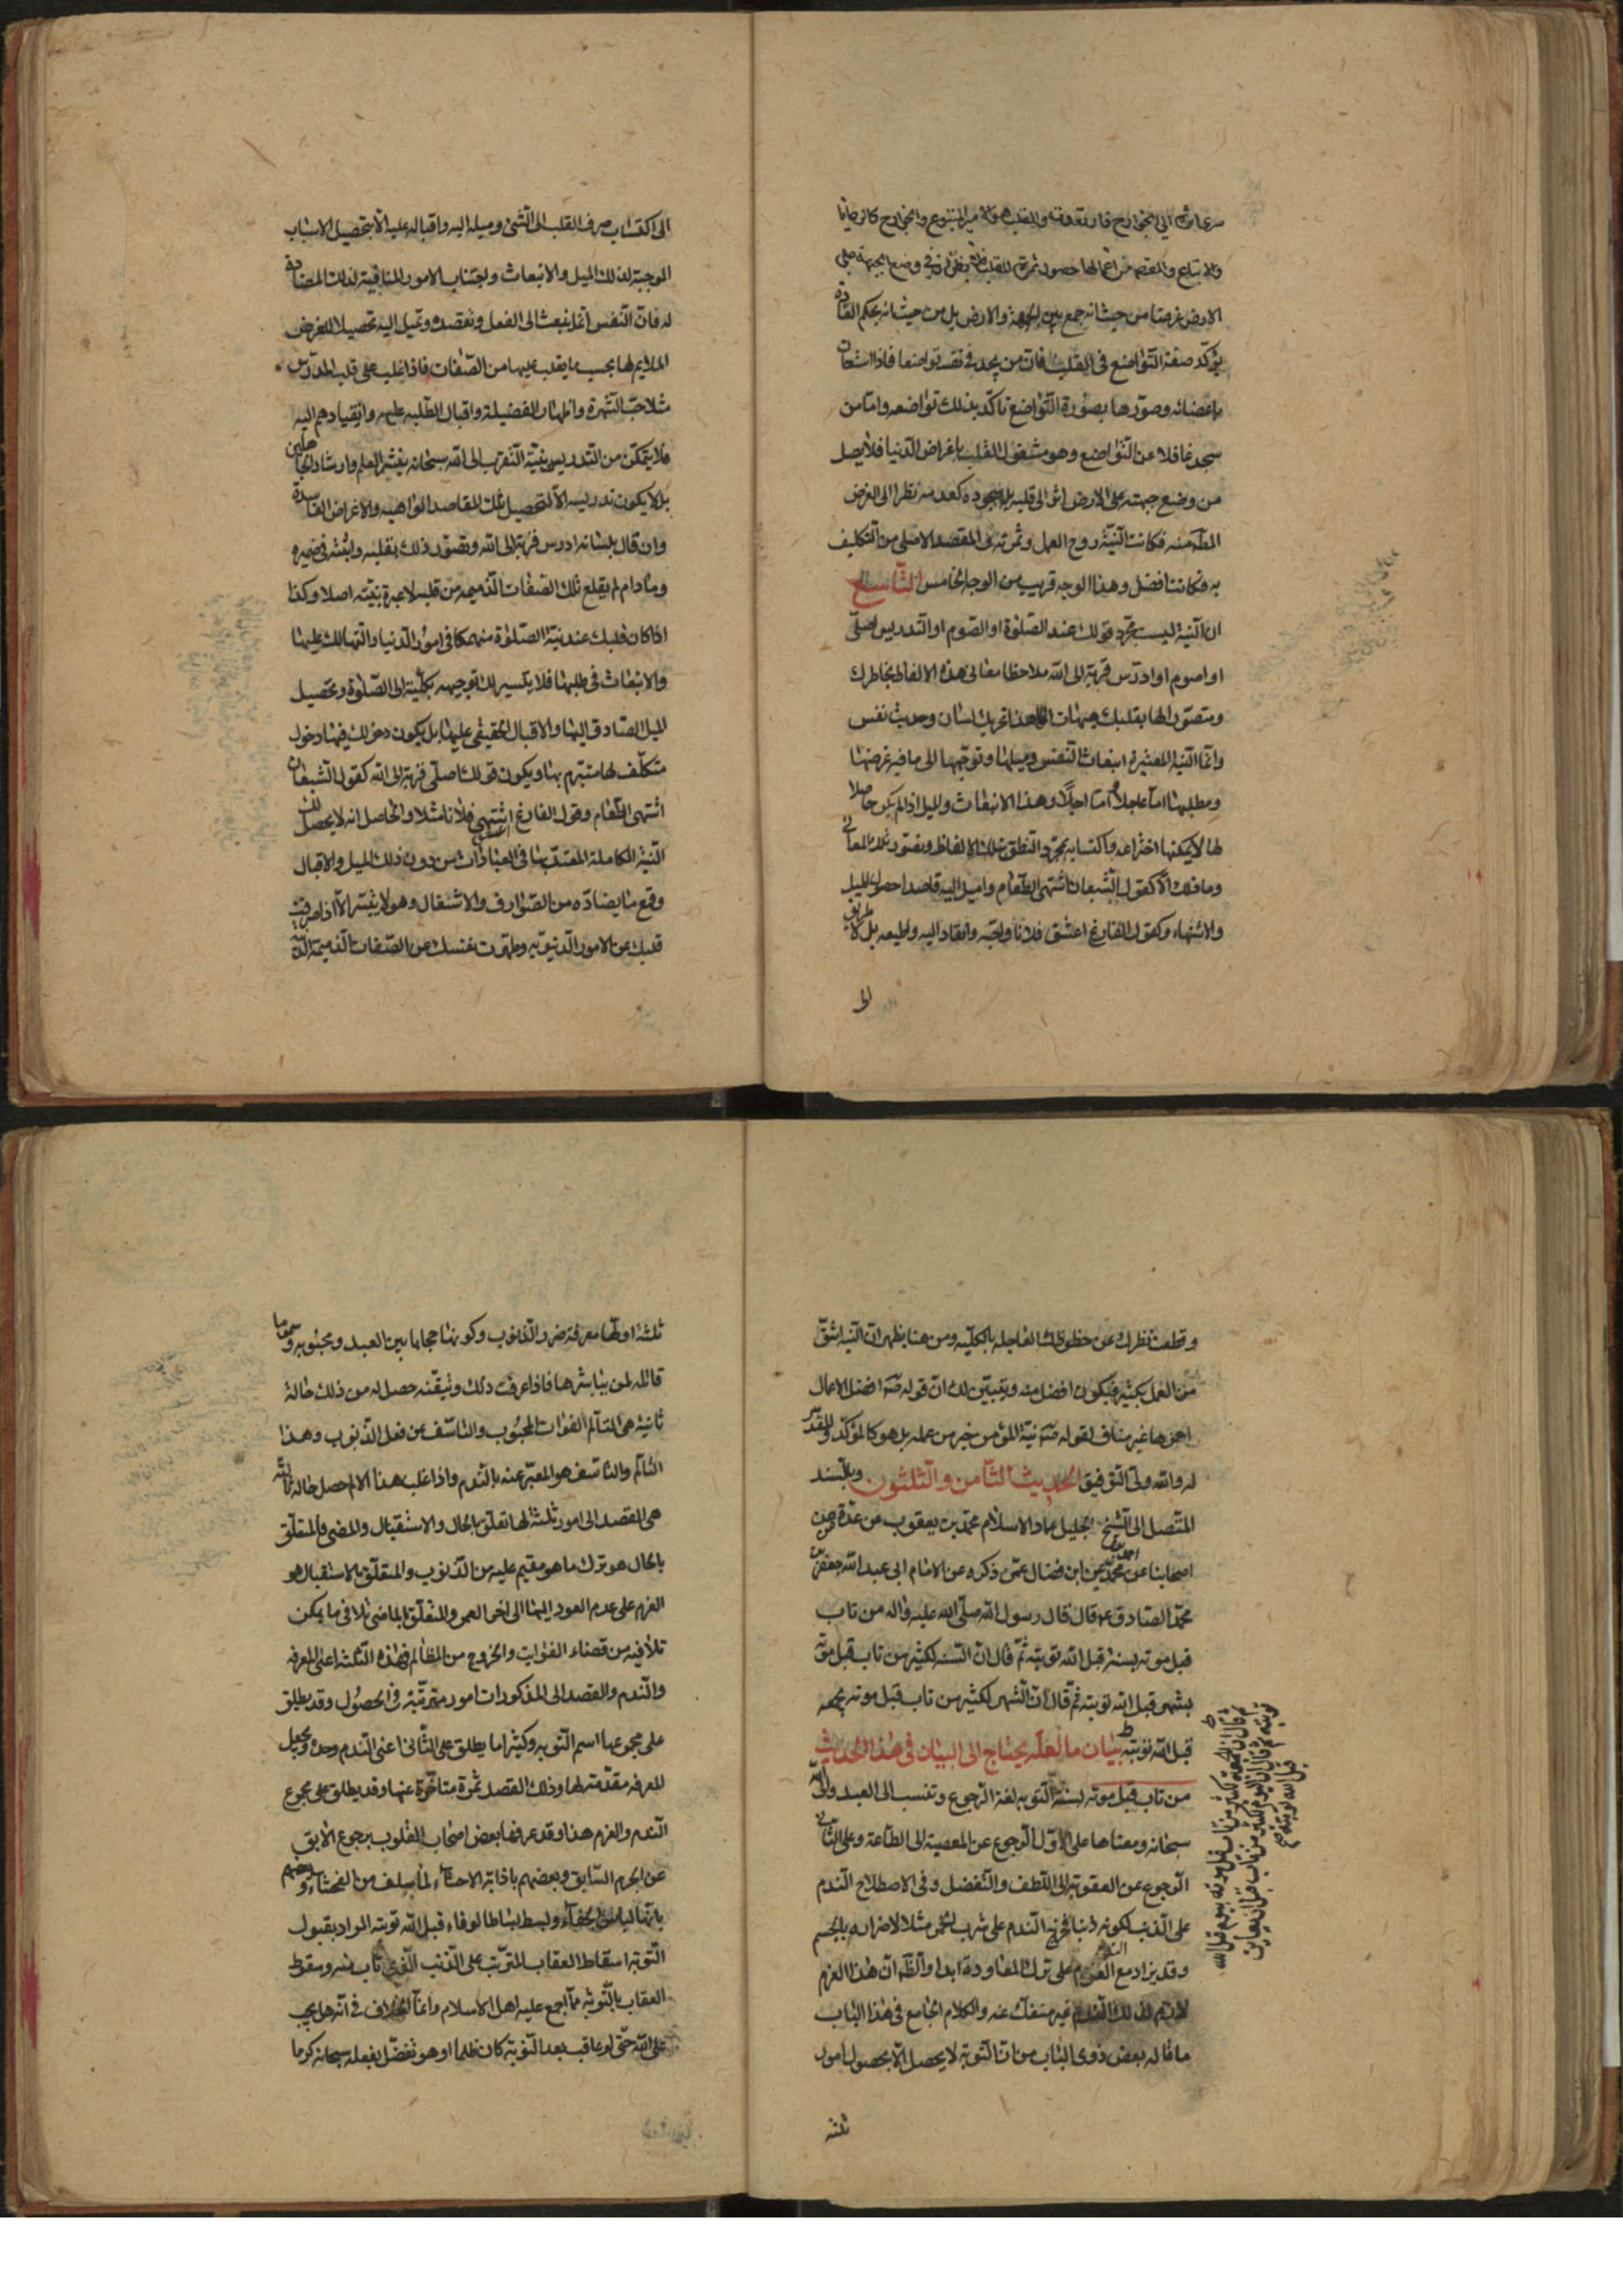 سرعان الى الجوارح فان تعوقت والقلب هو الامير المتبوع والجوارح كالرعايا
والاتباع والمقصد من اعمالها حصول ثمرة للقلب فلا تظن ان في وضع الجبهة على
الارض غرضا من حيث انه جمع بين الجبهة والارض بل من حيث انه بحكم العادة
يؤكد صفة التواضع في القلب فان من يجد في نفسه تواضعا فاذا استعان
باعضائه وصورها بصورة التواضع تاكد بذلك تواضعه وامّا من
سجد غافلا عن التواضع وهو مشغول القلب باغراض الدنيا فلا يصل
من وضع جبهته على الارض اثر الى قلبه بل سجوده كعدمه نظرا الى الغرض
المط منه فكانت النيّة روح العمل وثمرته والمقصد الاصلى من التكليف
به فكانت افضل وهذا الوجه قريب من الوجه الخامس التاسع
ان النيّة ليست مجرد قولك عند الصلوة او الصوم او التدريس اصلّى
او اصوم او ادرّس قربة الى الله ملاحظا معانى هذه الالفاظ بخاطرك
ومتصوّرا لها بقلبك هيهات انما هذا تحريك لسان وحديث نفس
وانّما النيّة المعتبرة انبعاث النفس وميلها وتوجّهها الى ما فيه غرضها
ومطلبها امّا عاجلا وامّا اجلا وهذا الانبعاث والميل اذا لم يكن حاصلا
لها لا يمكنها اختراعه واكتسابه بمجرّد النطق بتلك الالفاظ وتصوّر تلك المعانى
وما ذلك الّا كقول الشبعان اشتهى الطعام واميل اليه قاصدا حصول الميل
والاشتهاء وكقول الفارغ اعشق فلانا واحبّه وانقاد اليه واطيعه بل لا طريق
الى اكتساب صرف القلب الى الشئ وميله اليه واقباله عليه الّا بتحصيل الاسباب
الموجبة لذلك الميل والانبعاث واجتناب الامور المنافية لذلك المضادة
له فانّ النّفس انما تنبعث الى الفعل وتقصده وتميل اليه تحصيلا للغرض
الملايم لها بحسب ما يغلب عليها من الصّفات فاذا غلب على قلب المدرّس
مثلا حبّ الشهرة واظهار الفضيلة واقبال الطلبة عليه وانقيادهم اليه
فلا يتمكّن من التدريس بنيّة التّقرب الى الله سبحانه بنشر العلم وارشاد الجاهلين
بل لا يكون تدريسه الّا لتحصيل تلك المقاصد الواهية والاغراض الفاسدة
وان قال بلسانه ادرس قربة الى الله وتصوّر ذلك بقلبه واثبته في ضميره
وما دام لم يقلع تلك الصّفات الذميمة من قلبه لا عبرة بنيّته اصلا وكذا
اذا كان قلبك عند نيّة الصّلوة منهمكا فى امور الدّنيا والتهالك عليها
والانبعاث فى طلبها فلا يتيسر لك توجيهه بكلّيته الى الصّلوة وتحصيل
الميل الصادق اليها والاقبال الحقيقى عليها بل يكون دخولك فيها دخول
متكلّف لها متبرّم بها ويكون قولك اصلّى قربة الى الله كقول الشبعان
اشتهى الطعام وقول الفارغ اعشق فلانا مثلا والحاصل انه لا يحصل لك
النيّة الكاملة المعتدّ بها فى العبادات من دون ذلك الميل والاقبال
وقع ما يضادّه من الصّوارف والاشتغال وهو لا يتيسّر الّا اذا صرفت
قلبك عن الامور الدّنيويّة وطهّرت نفسك عن الصّفات الذميمة الدّنيّة
وقطعت نظرك عن حظوظك العاجلة بالكليّة ومن هنا يظهر انّ النيّة اشقّ
من العمل بكثير فيكون افضل منه ويتبيّن لك انّ قوله ص افضل الاعمال
احمزها غير مناف لقوله ص نيّة المؤمن خير من عمله بل هو كالمؤكّد والمقرّر
له والله ولىّ التّوفيق الحديث الثّامن والثّلثون وبالسّند
المتّصل الى الشّيخ الجليل عماد الاسلام محمّد بن يعقوب عن عدّة من
اصحابنا عن احمد بن محمّد عن ابن فضال عمّن ذكره عن الامام ابى عبد الله جعفر بن
محمّد الصّادق ع قال قال رسول الله صلّى الله عليه واله من تاب
قبل موته بسنة قبل الله توبته ثمّ قال انّ السّنة لكثيرة من تاب قبل موته
بشهر قبل الله توبته ثمّ قال انّ الشّهر لكثير من تاب قبل موته بجمعة
قبل الله توبته بيان ما لعلّه يحتاج الى البيان فى هذا الحديث
من تاب قبل موته بسنة التّوبة لغة الرّجوع وتنسب الى العبد والى الله
سبحانه ومعناها على الاوّل الرّجوع عن المعصية الى الطّاعة وعلى الثّانى
الرّجوع عن العقوبة الى اللّطف والتّفضل وفى الاصطلاح النّدم
على الذّنب لكونه ذنبا فخرج النّدم على شرب الخمر مثلا لاضراره بالجسم
وقد يزاد مع العزم على ترك المعاودة ابدا والظّ انّ هذا العزم
لازم لذلك النّدم غير منفكّ عنه والكلام الجامع فى هذا الباب
ما قاله بعض ذوى الالباب من انّ التّوبة لا يحصل الّا بحصول امور
ثلثة
ثم قال ان الجمعة لكثير من تاب قبل موته بيوم قبل الله
توبته ثم قال ان اليوم لكثير من تاب قبل ان يعاين
قبل الله توبته
ثلثة اوّلها معرفة ضرر الذّنوب وكونها حجابا بين العبد ومحبوبه وسموما
قاتلة لمن يباشرها فاذا عرفت ذلك وتيقنه حصل له من ذلك حالة
ثانية هى التألم لفوات المحبوب والتاسّف من فعل الذّنوب وهذا
التالّم والتاسّف هو المعبّر عنه بالنّدم واذا غلب هذا الالم حصل حالة ثالثة
هى القصد الى امور ثلثة لها تعلّق بالحال والاستقبال والمضى فالمتعلّق
بالحال هو ترك ما هو مقيم عليه من الذّنوب والمتعلّق بالاستقبال هو
العزم على عدم العود اليها الى اخر العمر والمتعلّق بالماضى تلافى ما يمكن
تلافيه من قضاء الفوايت والخروج من المظالم فهذه الثّلثة اعنى المعرفة
والنّدم والقصد الى المذكورات امور مترتّبة فى الحصول وقد يطلق
على مجموعها اسم التّوبة وكثيرا ما يطلق على الثّانى اعنى النّدم وحده ويجعل
المعرفة مقدّمة لها وذلك القصد ثمرة متاخّرة عنها وقد يطلق على مجموع
النّدم والعزم هذا وقد عرفها بعض اصحاب القلوب برجوع الابق
عن الجرم السّابق وبعضهم باذابة الاحشاء لما سلف من الفحشاء وبعضهم
بانّها لباس الجفاء وبسط بساط الوفاء قبل الله توبته المراد بقبول
التّوبة اسقاط العقاب المترتّب على الذّنب الّذى تاب منه وسقوط
العقاب بالتّوبة ممّا اجمع عليه اهل الاسلام وانّما الخلاف فى انّه هل يجب
على الله حتّى لو عاقب بعد التّوبة كان ظلما او هو تفضّل بفعله سبحانه كرما